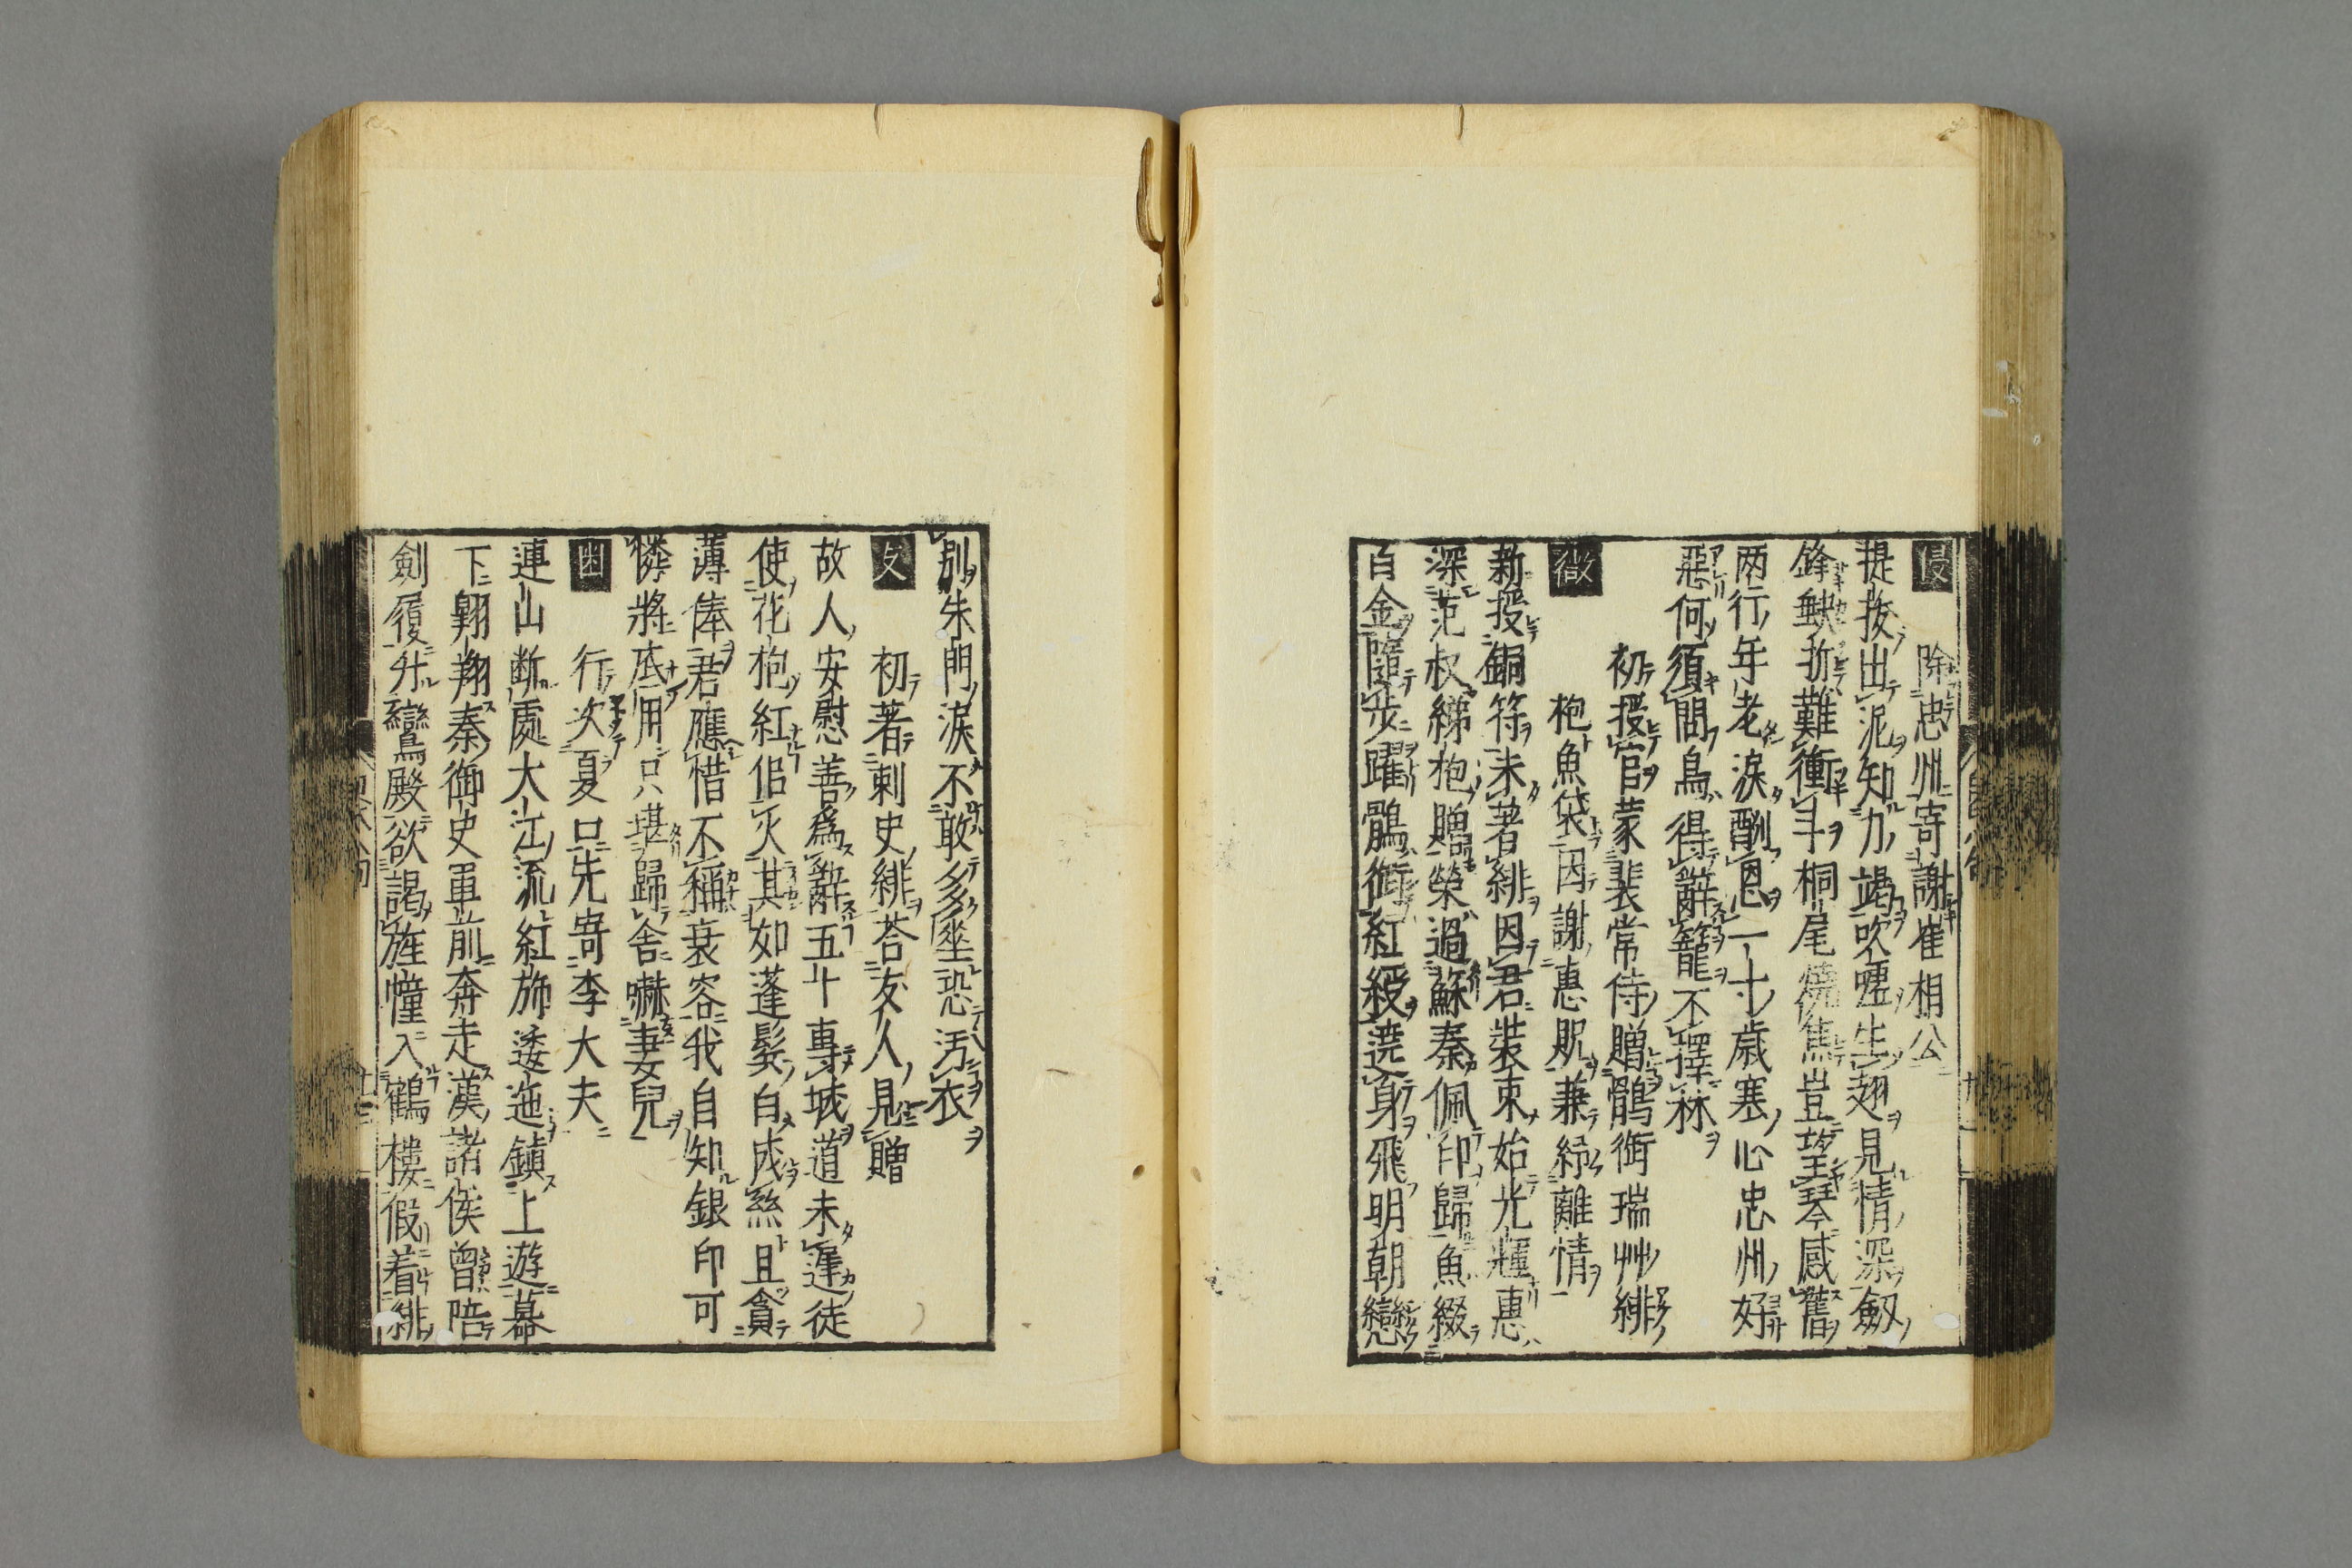 侵
除忠州寄謝崔相公
提拔出泥知力竭吹噓生翅見情深劔
鋒缺折難衝斗桐尾燒焦豈望琴感舊
两行年老淚酬恩一寸歲寒心忠州好
惡何須問鳥得辭籠不擇林
初授官蒙裴常侍贈鶻銜瑞艸緋
微
袍魚袋因謝惠貺兼紓離情
新授銅符未著緋因君裝束始光輝惠
深范叔綈袍贈榮過蘇秦佩印歸魚綴
白金隨步躍鶻銜紅綬遶身飛明朝戀
別朱門淚不敢多垂恐汚衣
支
初著刺史緋荅友人見贈
故人安慰善爲辭五十專城道未遲徒
使花袍紅似火其如蓬鬂白成絲且貪
薄俸君應惜不稱衰容我自知銀印可
憐將底用只堪歸舍嚇妻兒
行次夏口先寄李大夫
連山断處大江流紅旆逶迤鎮上遊幕
下翺翔秦御史軍前奔走漢諸侯曾陪
劍履升鸞殿欲謁旌幢入鶴樓假着緋